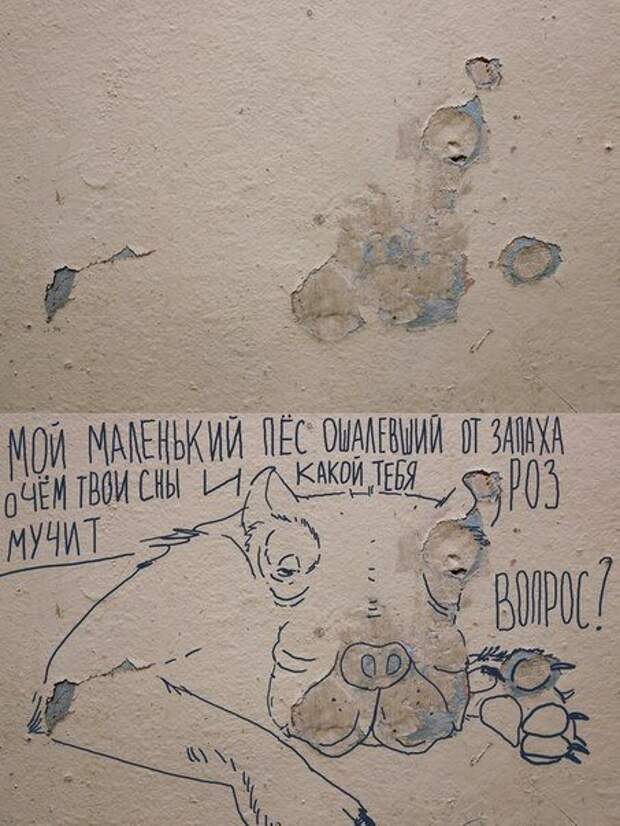 МОЙ МАЛЕНЬКИЙ ПЁС ОШАЛЕВШИЙ ОТ ЗАПАХА
О ЧЁМ ТВОИ СНЫ И КАКОЙ ТЕБЯ РОЗ
МУЧИТ
ВОПРОС?